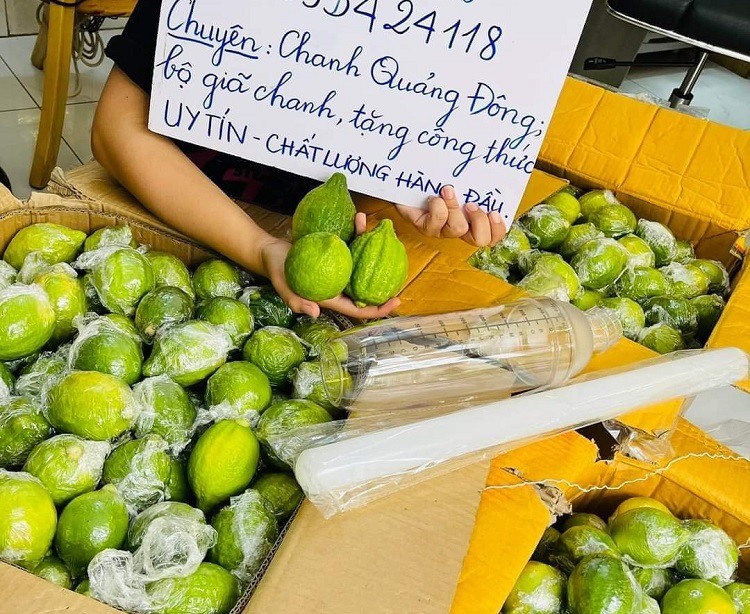 424118
Chuyên: Chanh Quảng Đông;
bộ giã chanh, tặng công thức
UY TÍN - CHẤT LƯỢNG HÀNG ĐẦU.